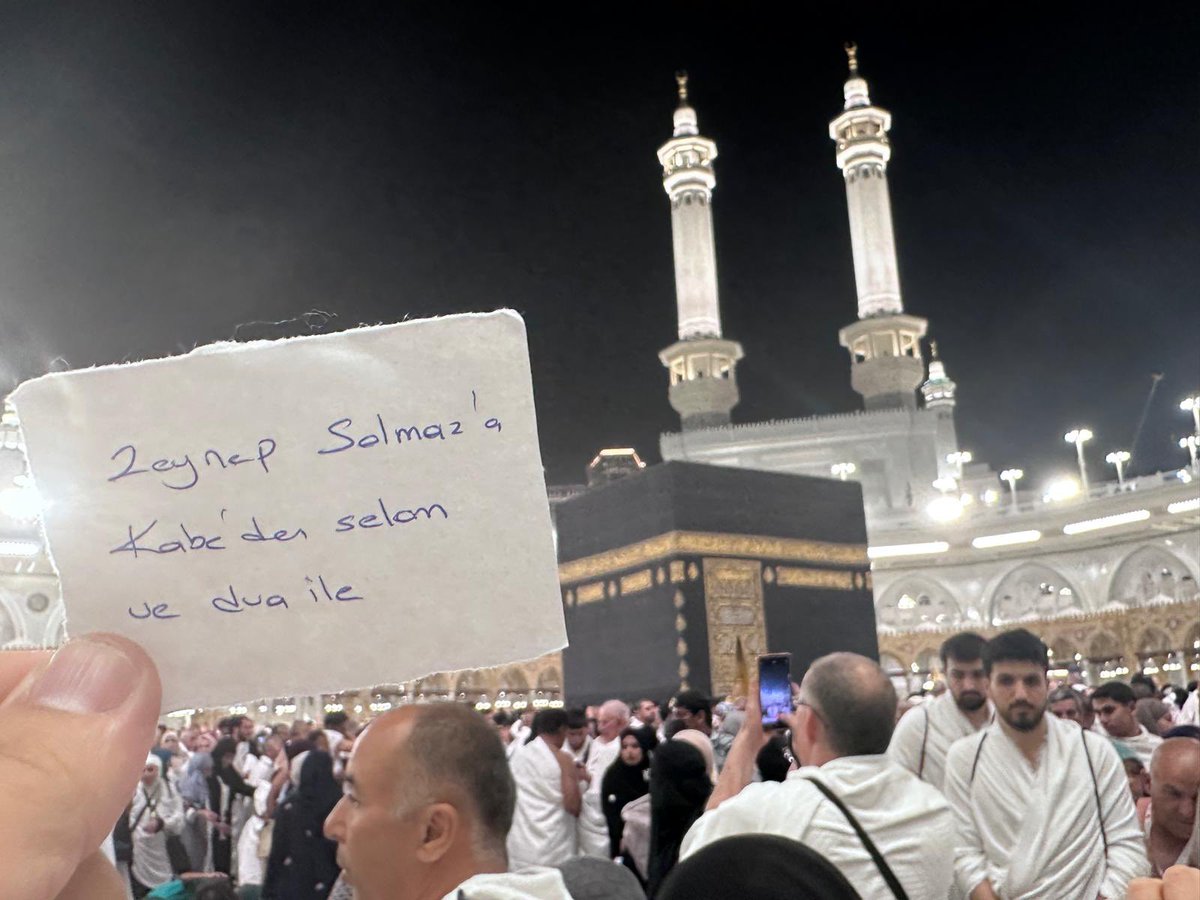 Zeynep Solmaz'a
Kabe'den selam
ve dua ile